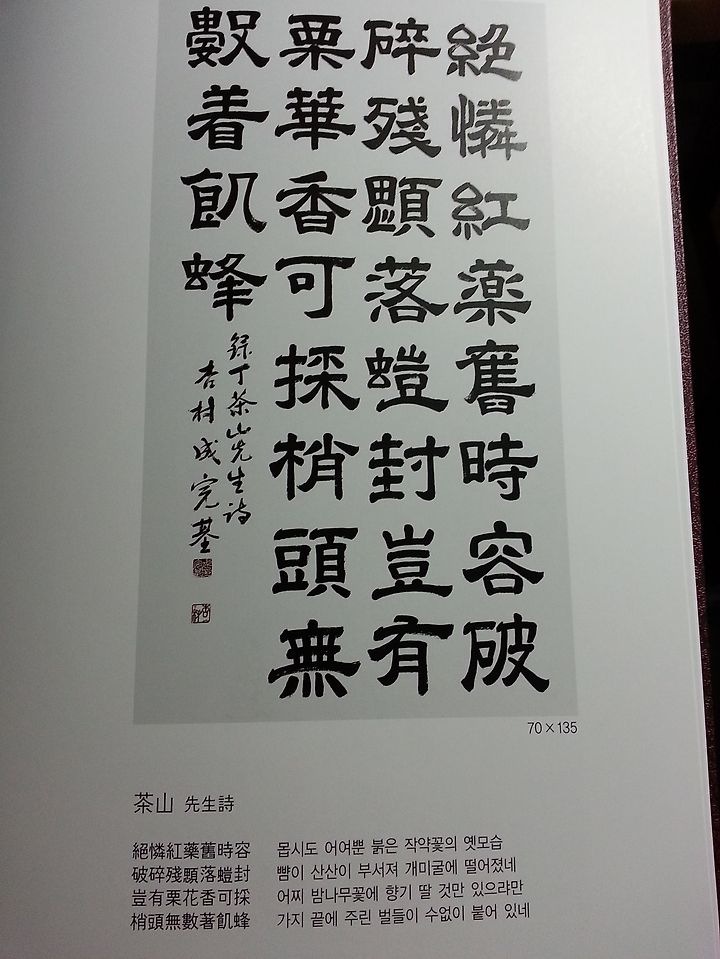 絶憐紅藥舊時容破
碎殘顋落螘封豈有
栗華香可採梢頭無
數着飢蜂
錄丁茶山先生詩
杏村成完基
70×135
茶山 先生詩
絕憐紅藥舊時容 몹시도 어여뿐 붉은 작약꽃의 옛모습
破碎殘顋落螘封 뺨이 산산이 부서져 개미굴에 떨어졌네
豈有栗花香可採 어찌 밤나무꽃에 향기 딸 것만 있으랴만
梢頭無數著飢蜂 가지 끝에 주린 벌들이 수없이 붙어 있네